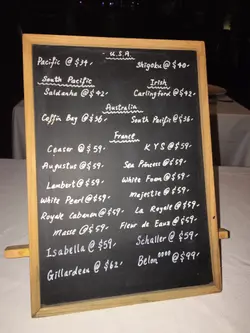 - U.S.A. -
Pacific @ $34.- Shigoku @ $40.-
South Pacific Irish
Saldanha @ $42.- Carlingford @ $42.-
Australia
Coffin Bay @ $36.- South Pacific @ $36.-
France
Ceasar @ $59.- K Y S @ $59.-
Augustus @ $59.- Sea Princess @ $59.-
Lambert @ $59.- White Foam @ $59.-
White Pearl @ $59.- Majestic @ $59.-
Royale Cabanon @ $59.- La Royale @ $59.-
Masse @ $59.- Fleur de Eaux @ $59.-
Isabella @ $59.- Schaller @ $59.-
Gillardeau @ $62.- Belon⁰⁰⁰⁰ @ $99.-